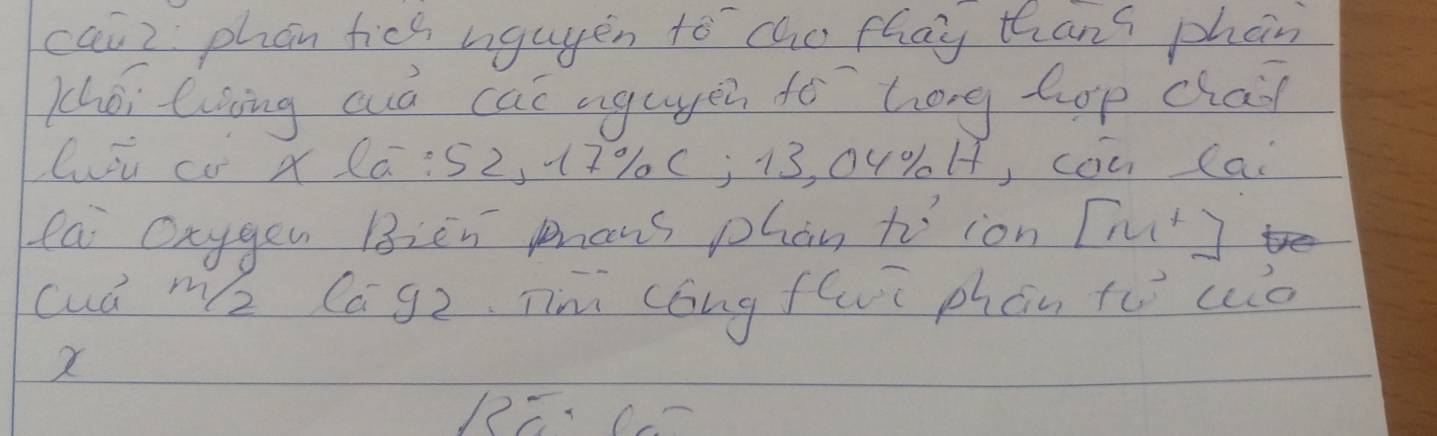 câu 2: phân tích nguyên tố cho thấy thành phần
khối lượng của các nguyên tố trong hợp chất
hữu cơ X là: 52,17% C; 13,04% H, còn lại
là Oxygen Biến mảnh phân tử ion [M+]
của m/2 là 92. Tìm công thức phân tử của
x
Bài là